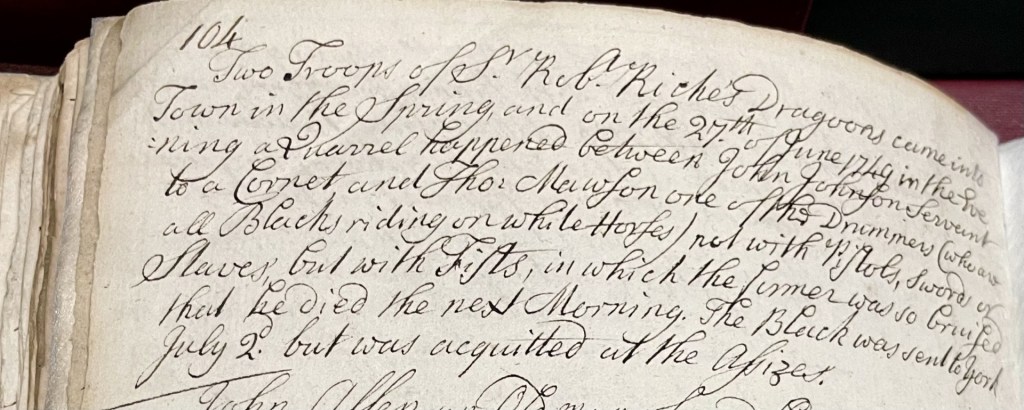 104
Two Troops of Sr. Robt. Riches Dragoons came into
Town in the Spring, and on the 27th of June 1749 in the Eve
:ning a Quarrel happened between John Johnson Servant
to a Cornet, and Thos. Mawson one of the Drummers (who are
all Blacks riding on white Horses) not with Pistols, Swords or
Staves, but with Fists, in which the former was so bruised
that he died the next Morning. The Black was sent to York
July 2d. but was acquitted at the Assizes.
John Allen an